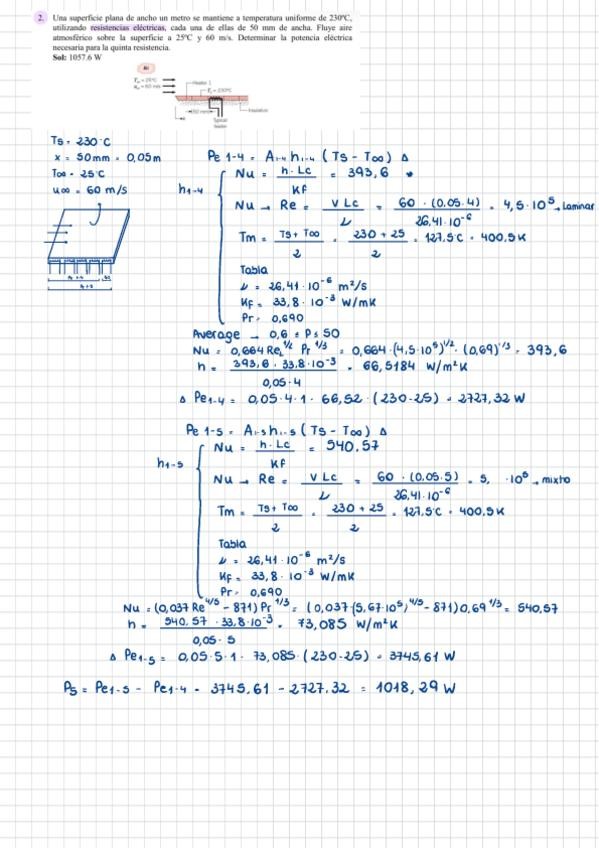 2. Una superficie plana de ancho un metro se mantiene a temperatura uniforme de 230ºC,
utilizando resistencias eléctricas, cada una de ellas de 50 mm de ancha. Fluye aire
atmosférico sobre la superficie a 25ºC y 60 m/s. Determinar la potencia eléctrica
necesaria para la quinta resistencia.
Sol: 1057.6 W
Air
T∞ = 25°C
u∞ = 60 m/s
Heater 1
Ts = 230°C
50 mm
Insulation
Typical
heater
Ts = 230°C
x = 50mm = 0,05m
T∞ = 25°C
u∞ = 60 m/s
Pe 1-4 = A1-4 h1-4 (Ts - T∞) Δ
h1-4
Nu = h·Lc / KF = 393,6
Nu → Re = V Lc / ν = 60 · (0,05·4) / 26,41·10⁻⁶ = 4,5·10⁵ → Laminar
Tm = Ts+T∞ / 2 = 230+25 / 2 = 127,5°C = 400,5K
Tabla
ν = 26,41·10⁻⁶ m²/s
KF = 33,8·10⁻³ W/mK
Pr = 0,690
Average → 0,6 ≤ P ≤ 50
Nu = 0,664 Re^1/2 Pr^1/3 = 0,664·(4,5·10⁵)^1/2·(0,69)^1/3 = 393,6
h = 393,6·33,8·10⁻³ / 0,05·4 = 66,5184 W/m²K
Δ Pe1-4 = 0,05·4·1·66,52·(230-25) = 2727,32 W
Pe 1-5 = A1-5 h1-5 (Ts - T∞) Δ
h1-5
Nu = h·Lc / KF = 540,57
Nu → Re = V Lc / ν = 60 · (0,05·5) / 26,41·10⁻⁶ = 5, ·10⁵ → mixto
Tm = Ts+T∞ / 2 = 230+25 / 2 = 127,5°C = 400,5K
Tabla
ν = 26,41·10⁻⁶ m²/s
KF = 33,8·10⁻³ W/mK
Pr = 0,690
Nu = (0,037 Re^4/5 - 871) Pr^1/3 = (0,037·(5,67·10⁵)^4/5 - 871) 0,69^1/3 = 540,57
h = 540,57·33,8·10⁻³ / 0,05·5 = 73,085 W/m²K
Δ Pe1-5 = 0,05·5·1·73,085·(230-25) = 3745,61 W
P5 = Pe1-5 - Pe1-4 = 3745,61 - 2727,32 = 1018,29 W